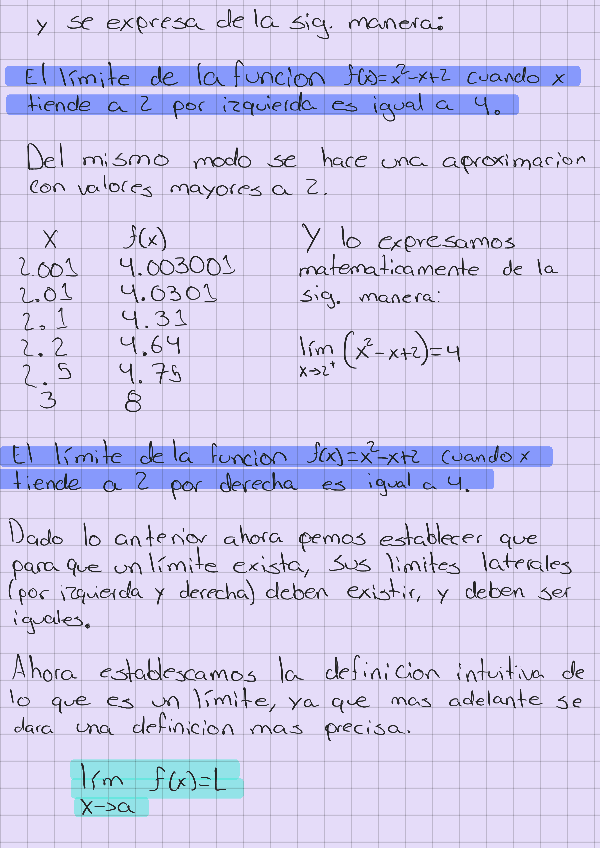 y se expresa de la sig. manera:
El límite de la funcion f(x)=x²-x+2 cuando x
tiende a 2 por izquierda es igual a 4.
Del mismo modo se hace una aproximacion
con valores mayores a 2.
X f(x)
2.001 4.003001
2.01 4.0301
2.1 4.31
2.2 4.64
2.5 4.75
3 8
Y lo expresamos
matematicamente de la
sig. manera:
lím (x²-x+2)=4
x→2⁺
El límite de la funcion f(x)=x²-x+2 cuando x
tiende a 2 por derecha es igual a 4.
Dado lo anterior ahora pemos establecer que
para que un límite exista, sus limites laterales
(por izquierda y derecha) deben existir, y deben ser
iguales.
Ahora establescamos la definicion intuitiva de
lo que es un límite, ya que mas adelante se
dara una definicion mas precisa.
lím f(x)=L
x→a